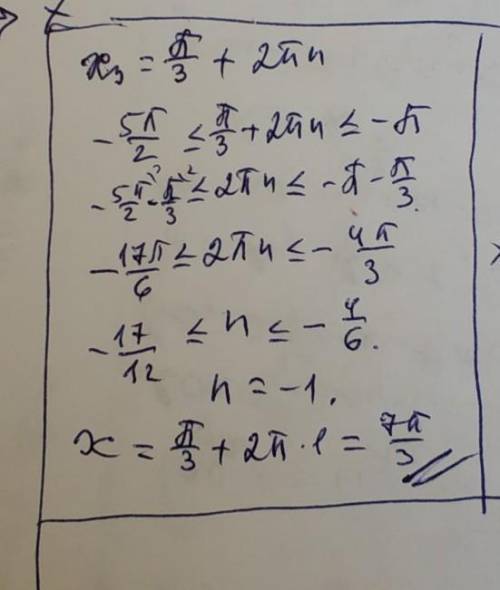 x₃ = π/3 + 2πn
-5π/2 ≤ π/3 + 2πn ≤ -π
-5π/2 - π/3 ≤ 2πn ≤ -π - π/3.
-17π/6 ≤ 2πn ≤ -4π/3
-17/12 ≤ n ≤ -4/6.
n = -1.
x = π/3 + 2π·1 = 7π/3